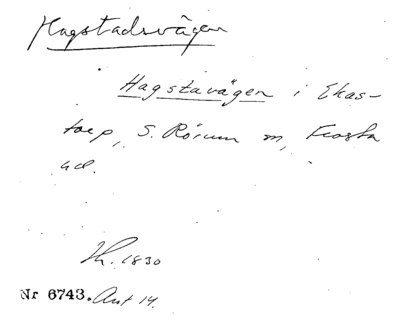 Hagstadsvägen
Hagstavägen i Ekas-
torp, S. Rörum sn, Frosta
hd.
Kh. 1830
Nr 6743. Ant 14.